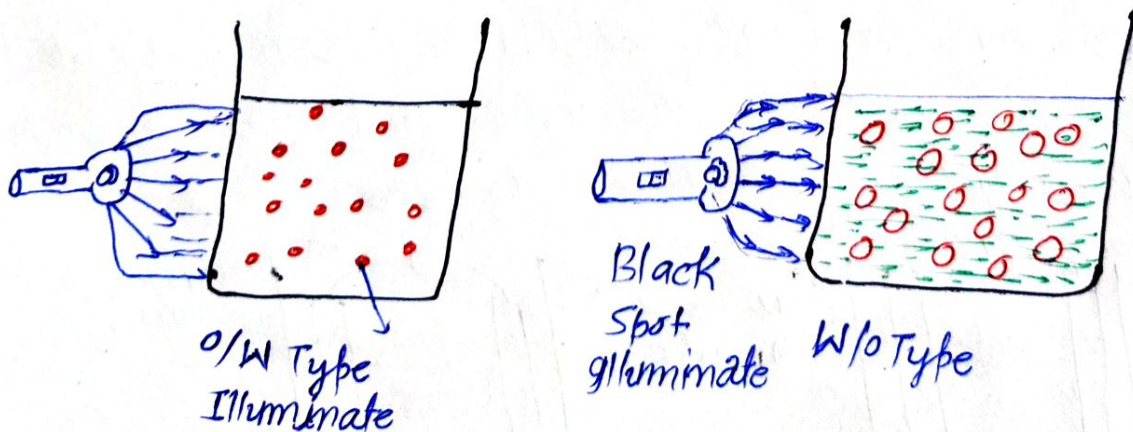 O/W Type
Illuminate
Black
Spot
gIlluminate
W/O Type